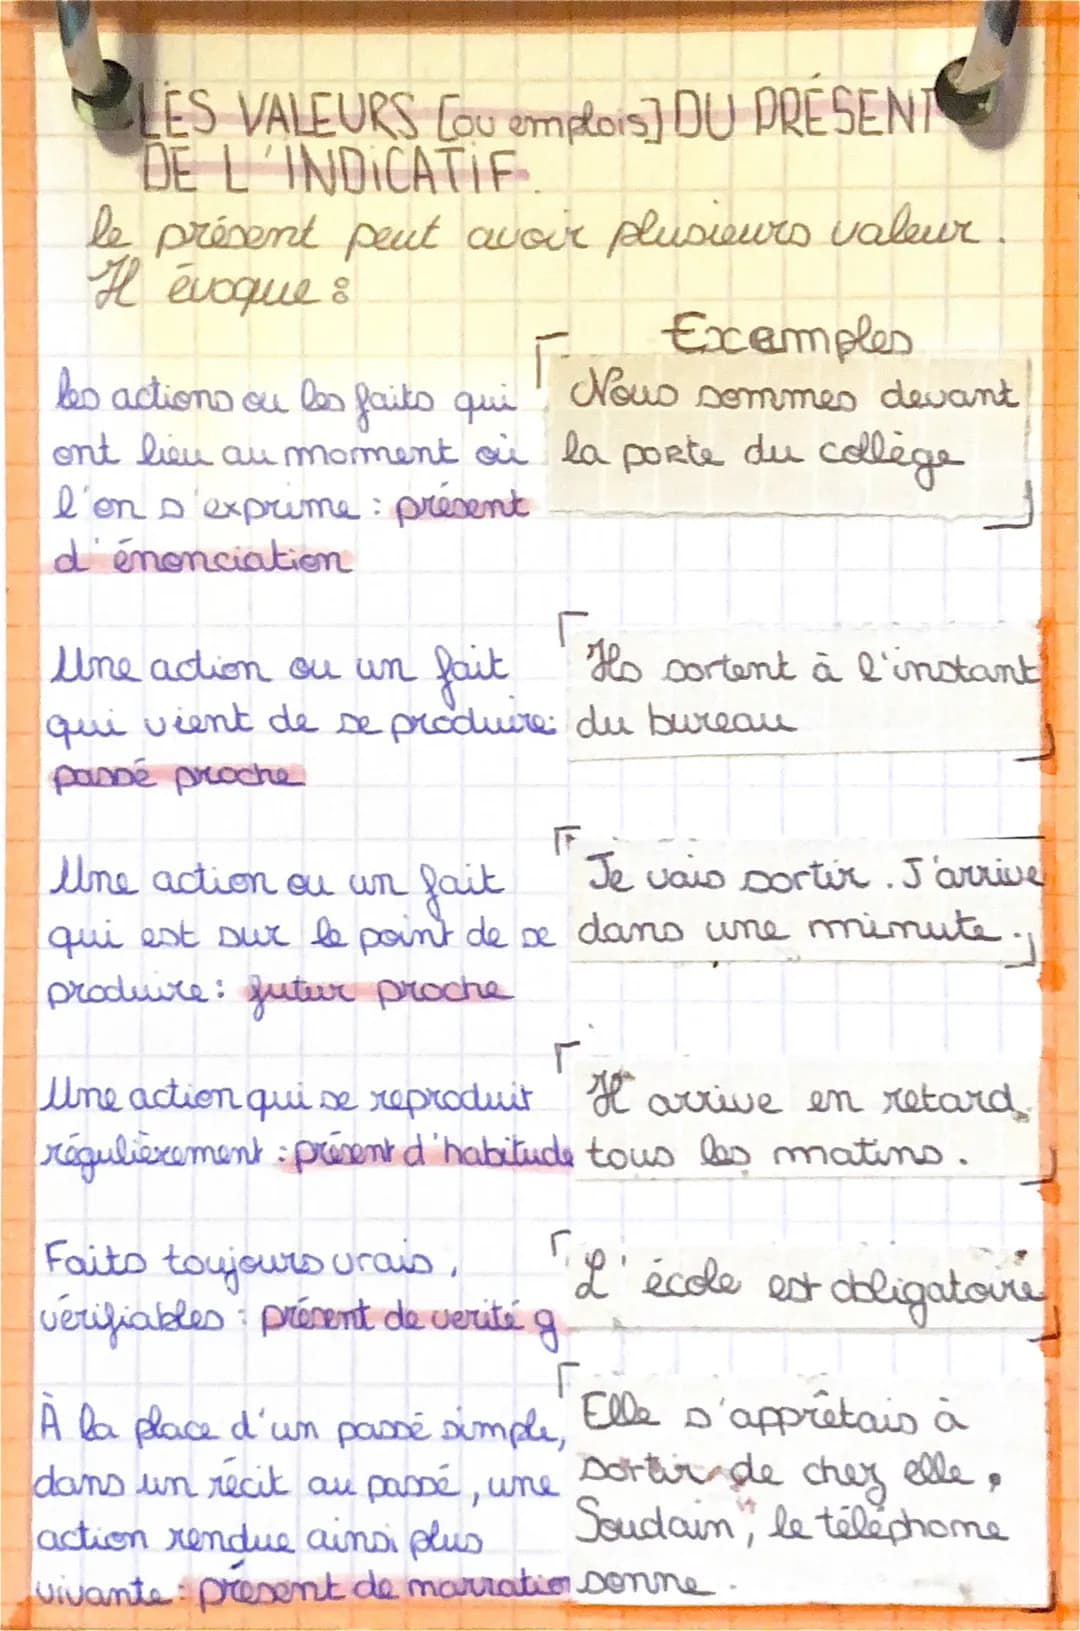 LES VALEURS [ou emplois] DU PRÉSENT
DE L'INDICATIF.
le présent peut avoir plusieurs valeur.
Il évoque :
Examples
les actions ou les faits qui
ont lieu au moment où
l'on s'exprime : présent
d'énonciation
Nous sommes devant
la porte du collège
Une action ou un fait
qui vient de se produire :
passé proche
Ils sortent à l'instant
du bureau
Une action ou un fait
qui est sur le point de se
produire : futur proche
Je vais sortir. J'arrive
dans une minute.
Une action qui se reproduit
régulièrement : présent d'habitude
Il arrive en retard
tous les matins.
Faits toujours vrais,
vérifiables : présent de verité g
L'école est obligatoire
À la place d'un passé simple,
dans un récit au passé, une
action rendue ainsi plus
vivante : présent de narration
Elle s'apprêtais à
sortir de chez elle,
Soudain, le téléphone
sonne.